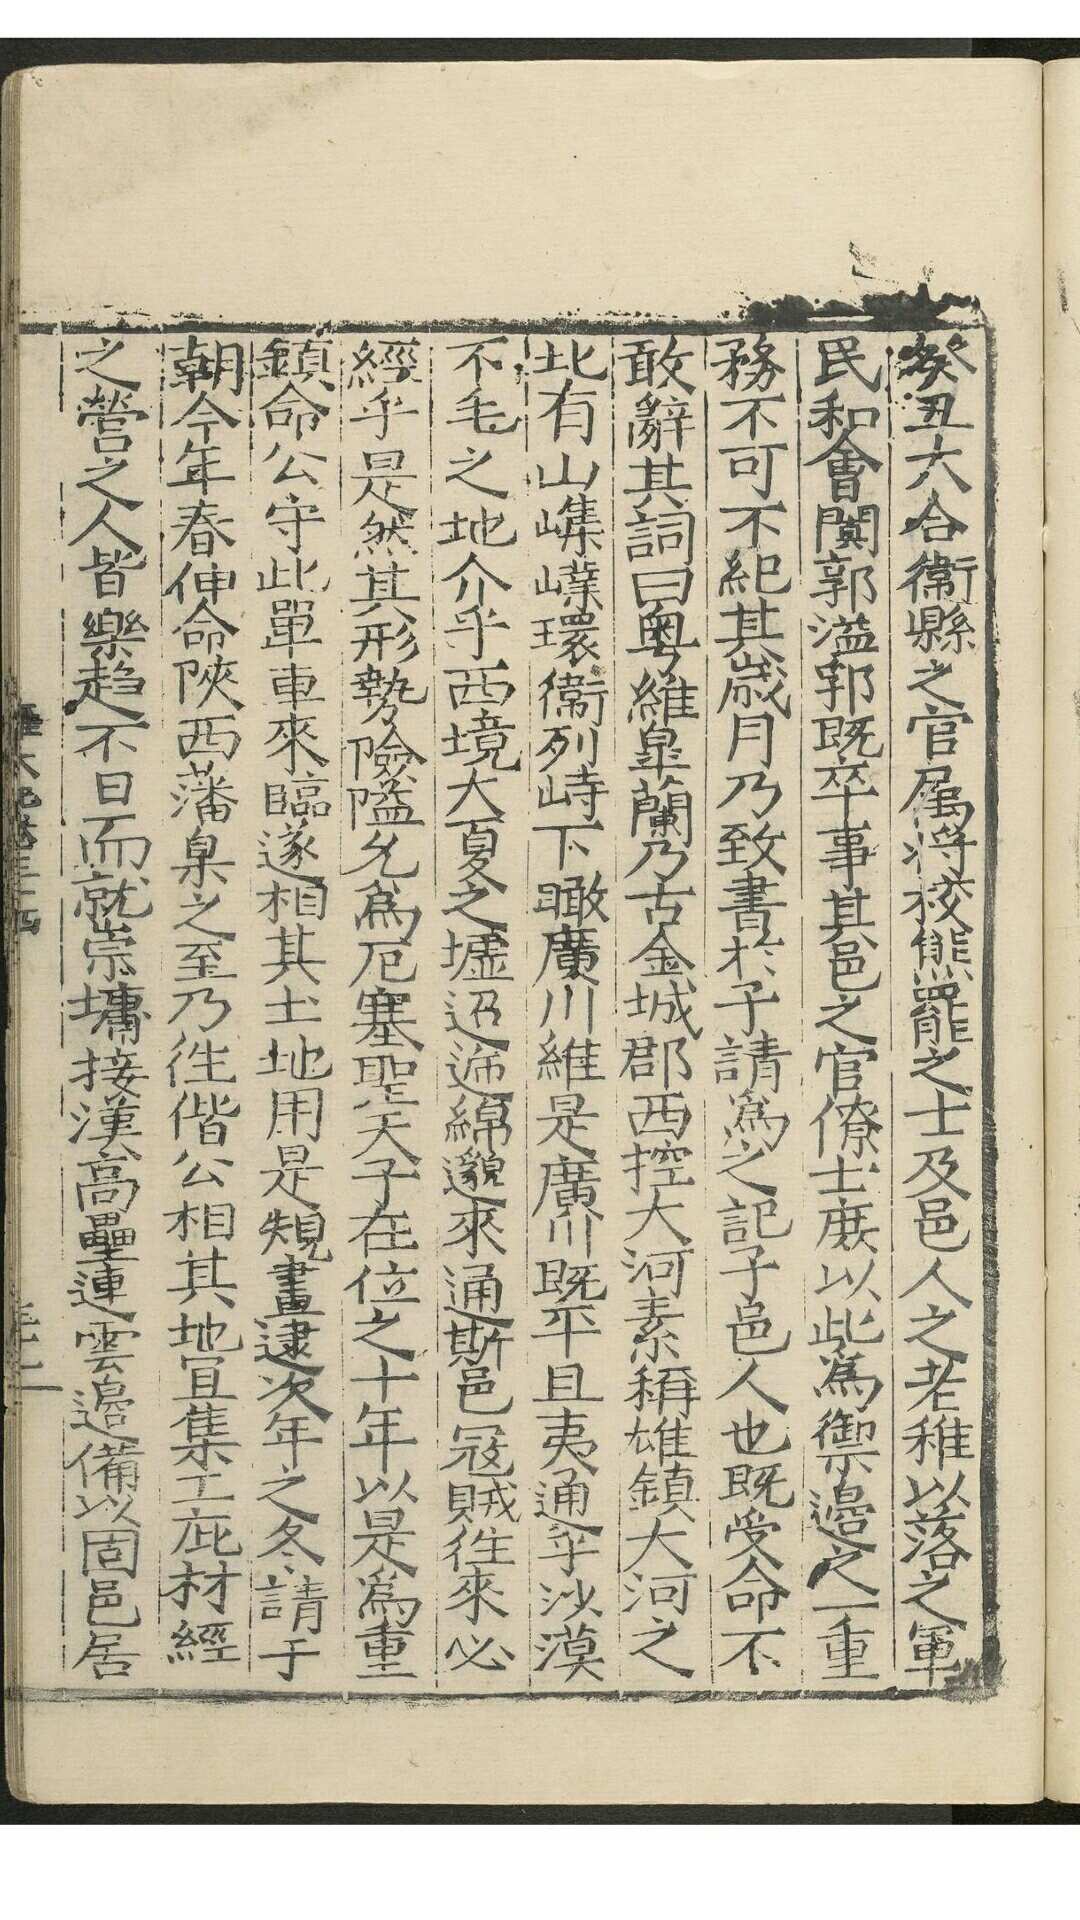 癸丑大合衞縣之官屬將校熊羆之士及邑人之老稚以落之軍
民和會闐郭溢郛既卒事其邑之官僚士庶以此爲禦邊之一重
務不可不紀其歲月乃致書於予請爲之記予邑人也既受命不
敢辭其詞曰粤維臯蘭乃古金城郡西控大河素稱雄鎮大河之
北有山巏嶫環衞列峙下瞰廣川維是廣川既平且夷通乎沙漠
不毛之地介乎西境大夏之墟迢遞綿邈來通斯邑寇賊徃來必
經乎是然其形勢險隘允爲厄塞聖天子在位之十年以是爲重
鎮命公守此單車來臨遂相其土地用是規畫逮次年之冬請于
朝今年春伸命陝西藩臬之至乃徃偕公相其地宜集工庀材經
之營之人皆樂趋不日而就崇墉接漢高壘連雲邉備以固邑居